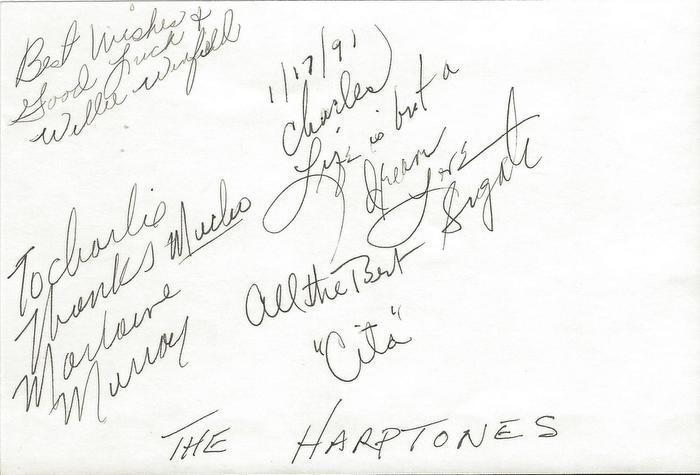 Best Wishes &
Good Luck
Willie Winfield
1/17/91
Charles
Life is but a
dream
Love
To charlie
Thanks Mucho
Marlowe
Murray
All the Best
"Cita"
THE HARPTONES